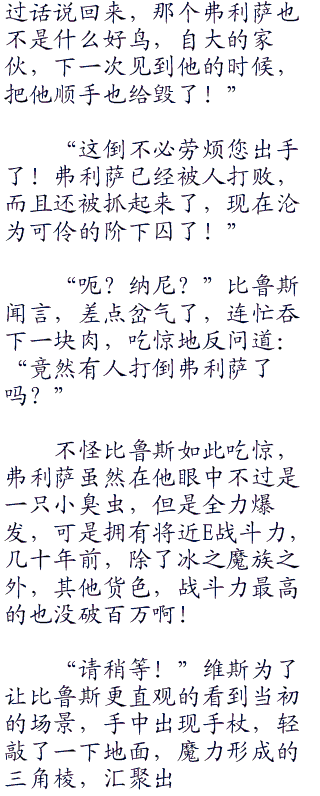 过话说回来，那个弗利萨也
不是什么好鸟，自大的家
伙，下一次见到他的时候，
把他顺手也给毁了！”
“这倒不必劳烦您出手
了！弗利萨已经被人打败，
而且还被抓起来了，现在沦
为可伶的阶下囚了！”
“呃？纳尼？”比鲁斯
闻言，差点岔气了，连忙吞
下一块肉，吃惊地反问道：
“竟然有人打倒弗利萨了
吗？”
不怪比鲁斯如此吃惊，
弗利萨虽然在他眼中不过是
一只小臭虫，但是全力爆
发，可是拥有将近E战斗力，
几十年前，除了冰之魔族之
外，其他货色，战斗力最高
的也没破百万啊！
“请稍等！”维斯为了
让比鲁斯更直观的看到当初
的场景，手中出现手杖，轻
敲了一下地面，魔力形成的
三角棱，汇聚出